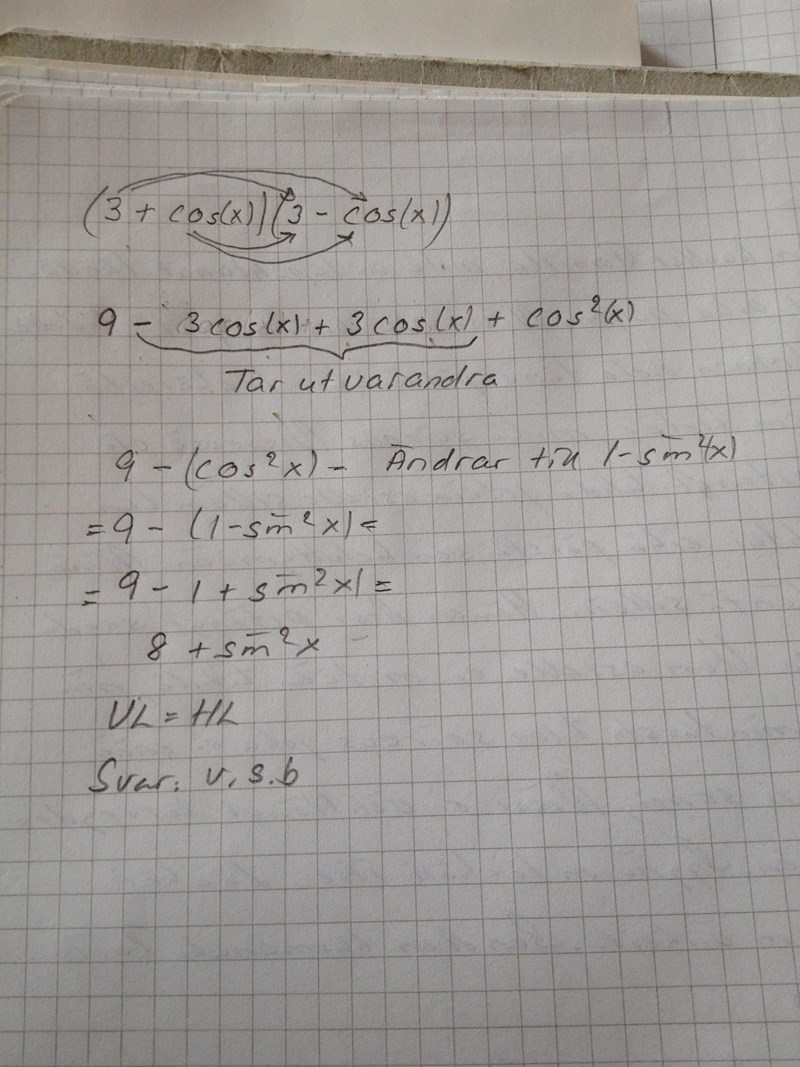 (3 + cos(x))(3 - cos(x))
9 - 3cos(x) + 3cos(x) + cos²(x)
Tar ut varandra
9 - (cos²x) - Ändrar till 1-sin²(x)
= 9 - (1-sin²x) =
= 9 - 1 + sin²x) =
8 + sin²x
VL = HL
Svar: v.s.b